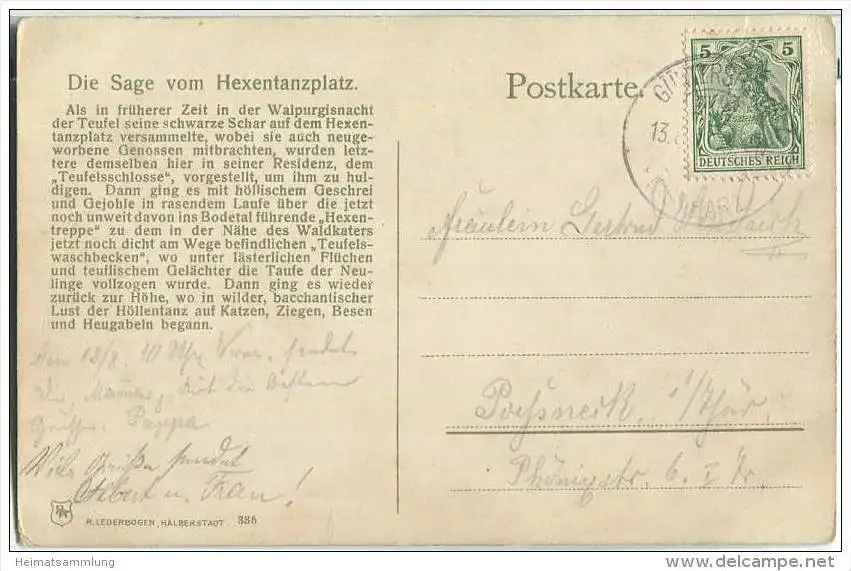 Die Sage vom Hexentanzplatz.
Als in früherer Zeit in der Walpurgisnacht
der Teufel seine schwarze Schar auf dem Hexen-
tanzplatz versammelte, wobei sie auch neuge-
worbene Genossen mitbrachten, wurden letz-
tere demselben hier in seiner Residenz, dem
„Teufelsschlosse", vorgestellt, um ihm zu hul-
digen. Dann ging es mit höllischem Geschrei
und Gejohle in rasendem Laufe über die jetzt
noch unweit davon ins Bodetal führende „Hexen-
treppe" zu dem in der Nähe des Waldkaters
jetzt noch dicht am Wege befindlichen „Teufels-
waschbecken", wo unter lästerlichen Flüchen
und teuflischem Gelächter die Taufe der Neu-
linge vollzogen wurde. Dann ging es wieder
zurück zur Höhe, wo in wilder, bacchantischer
Lust der Höllentanz auf Katzen, Ziegen, Besen
und Heugabeln begann.
Den 13/8. 10 Uhr Vorm. sendet
Dir, Mama, die besten
Grüsse. Pappa
Viele Grüße sendet
Albert u. Frau!
R. LEDERBOGEN, HALBERSTADT 335
Postkarte.
5 5
DEUTSCHES REICH
13.
(HARZ)
Fräulein Gertrud
Poessneck i/Thür.
Phönixstr. 6. I
Heimatsammlung
www.delcampe.net